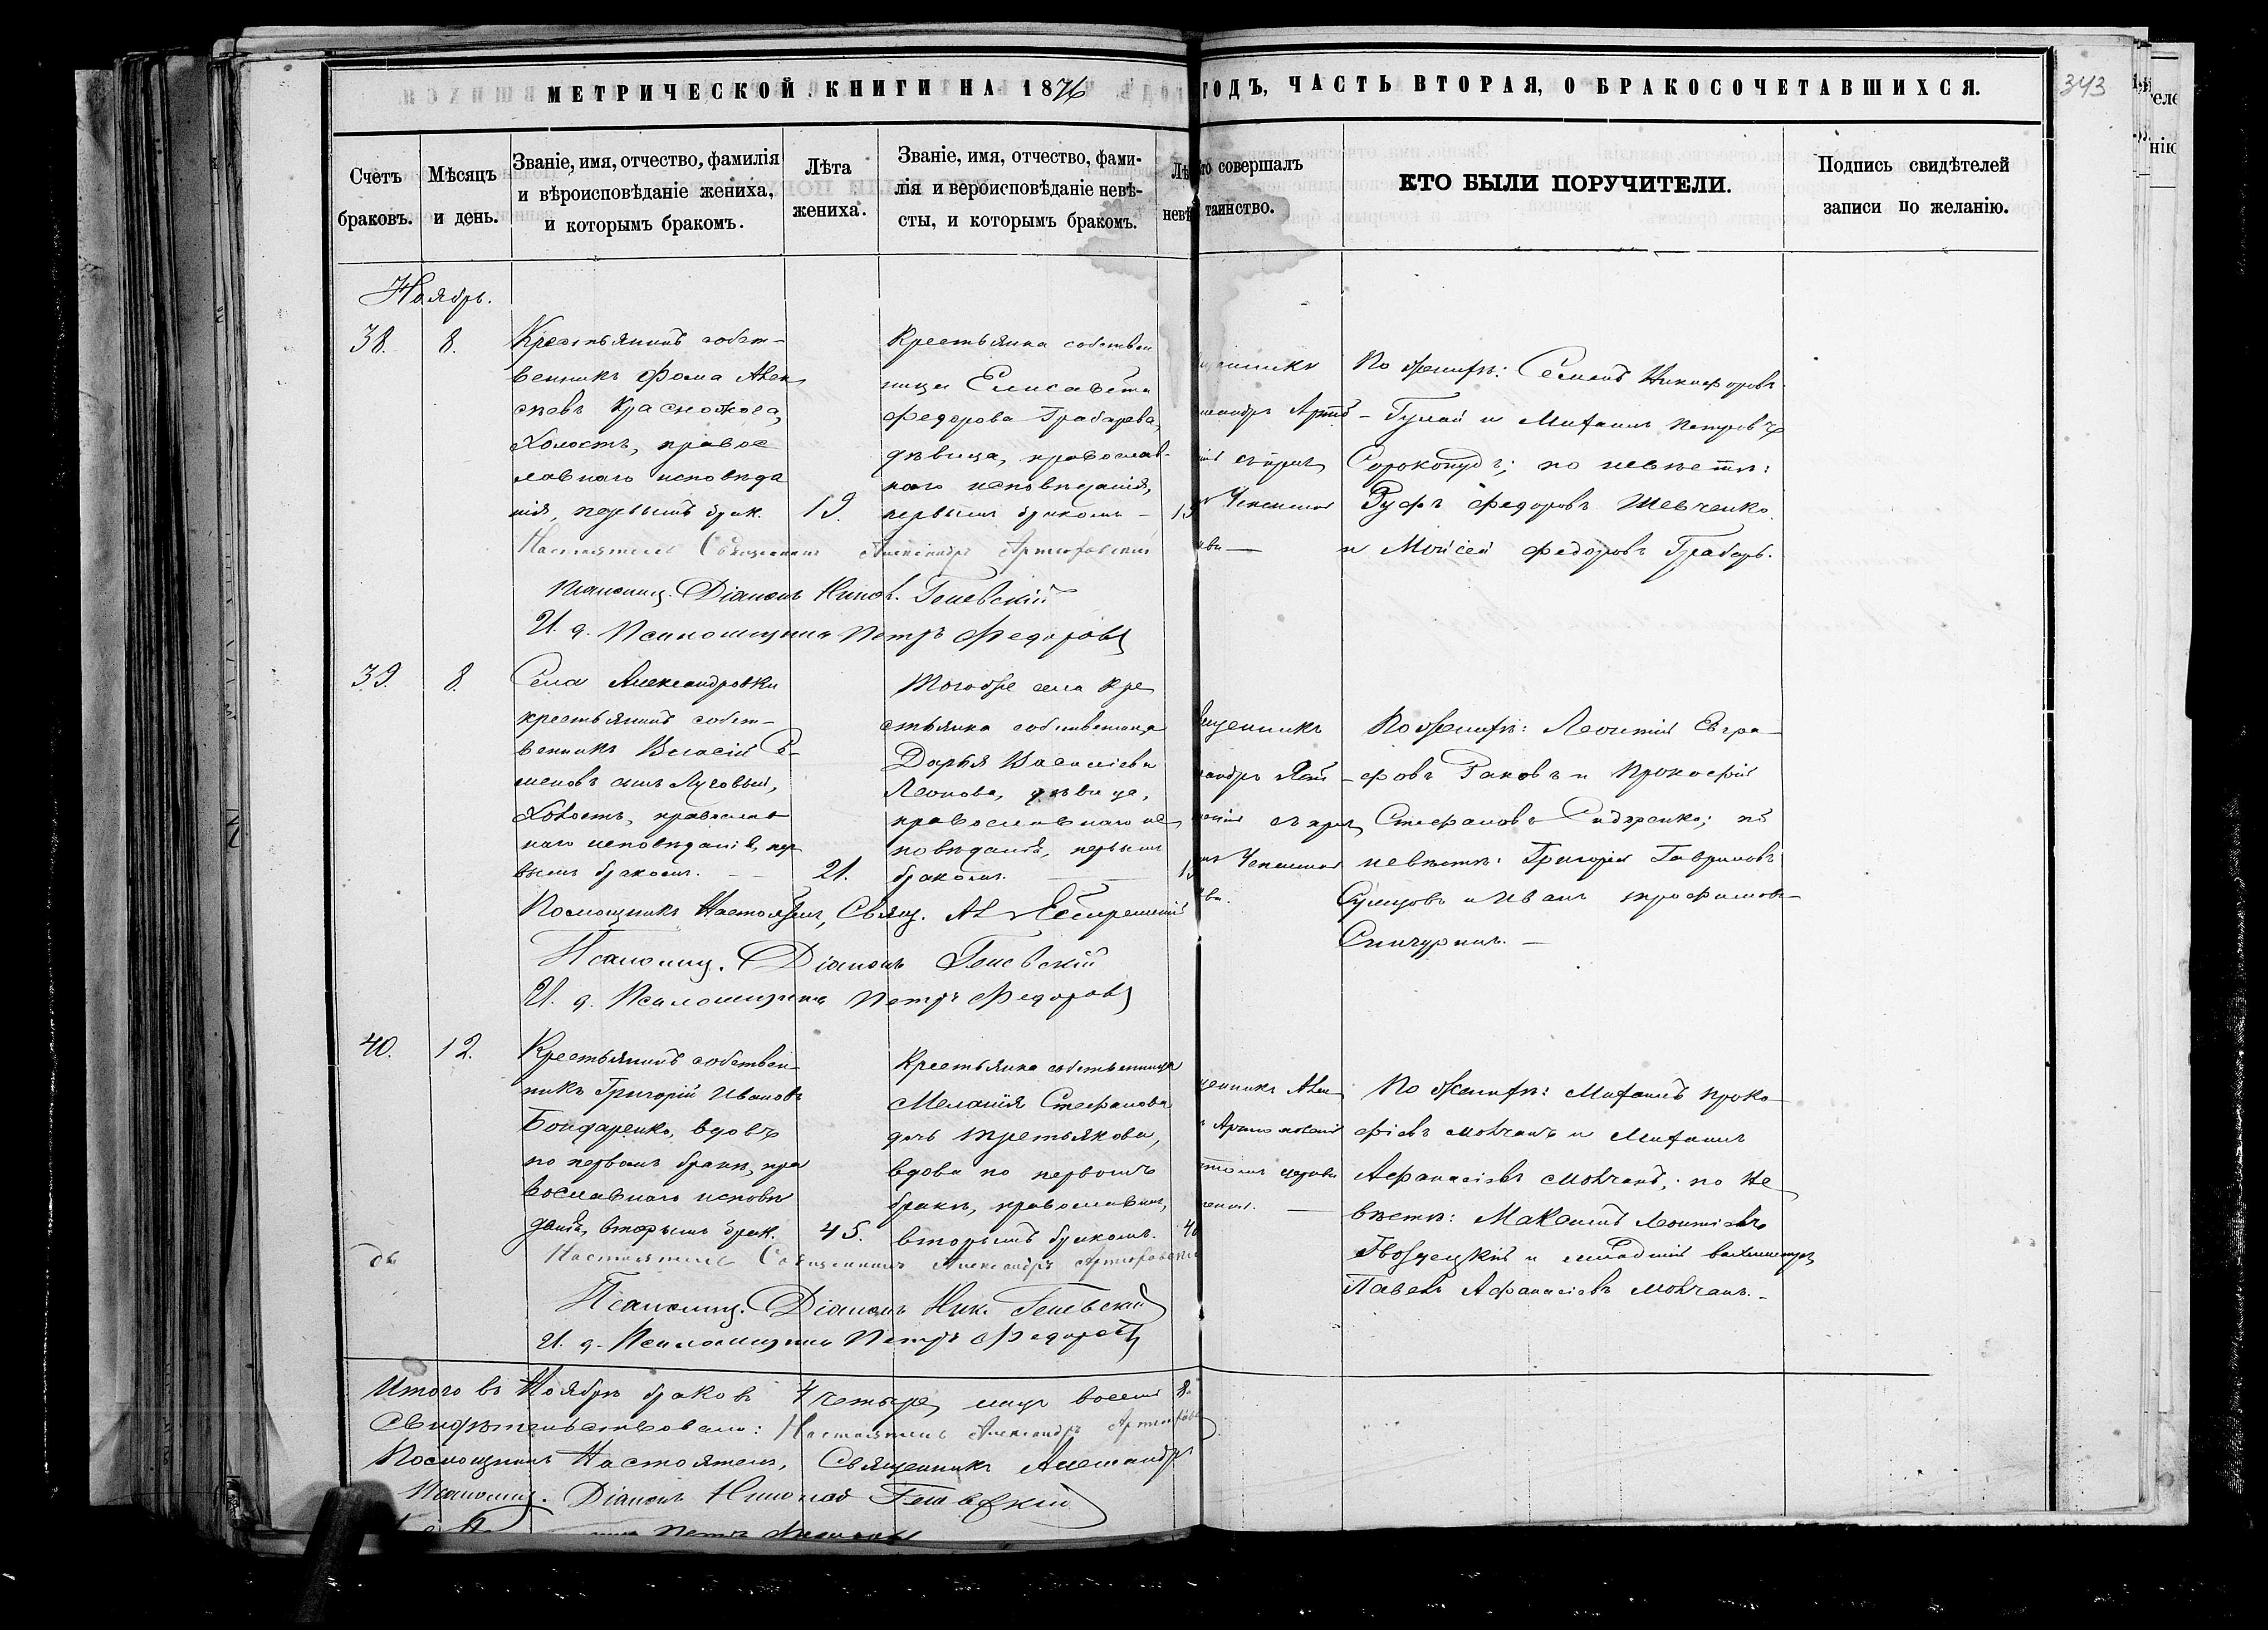 МЕТРИЧЕСКОЙ КНИГИ НА 1876
ГОДЪ, ЧАСТЬ ВТОРАЯ, О БРАКОСОЧЕТАВШИХСЯ.
343
Счетъ
браковъ.
Мѣсяцъ
и день.
Званіе, имя, отчество, фамилія
и вѣроисповѣданіе жениха,
и которымъ бракомъ.
Лѣта
жениха.
Званіе, имя, отчество, фами-
лія и вероисповѣданіе невѣ-
сты, и которымъ бракомъ.
Лѣ
невѣ
то совершалъ
таинство.
КТО БЫЛИ ПОРУЧИТЕЛИ.
Подпись свидѣтелей
записи по желанію.
Ноябрь.
38.
8.
Крестьянинъ собст-
венникъ Фома Алек
сѣевъ
Холостъ, правос
лавнаго исповѣда
нія, первымъ брак.
19.
Крестьянка собствен
ница Елисавета
Федорова Грабарева,
дѣвица, православ-
наго исповѣданія,
первымъ бракомъ -
По женихѣ: Семенъ Никифоровъ
Гулай и Михаилъ Петровъ
Сорокопудъ; по невѣстѣ:
Руфъ Федоровъ Шевченко
и Мойсей Федоровъ Грабарь.
Настоятель Священникъ Александръ Артюховскій
Псаломщ. Діаконъ Никол. Геневскій
И. д. Псаломщика Петръ Федоровъ
39.
8.
Села Александровки
крестьянинъ собст-
венникъ Власій Се-
меновъ сынъ Луговый,
Холостъ, православ
наго исповѣданія, пер
вымъ бракомъ. -
21.
Тогоже села Кре
стьянка собственница
Дарья Василіева
Леонова, дѣвица,
православнаго ис
повѣданія, первымъ
бракомъ.
вященникъ
По женихѣ: Леонтій Евгра-
фовъ Раковъ и Прокофій
Стефановъ Сидаренко; по
невѣстѣ: Григорій Гавриловъ
Сумцовъ и Иванъ Трофимовъ
Сничуринъ. -
Помощникъ Настоятеля, Свящ. Ал.
Псаломщ. Діаконъ Геневскій
И. д. Псаломщика Петръ Федоровъ
40.
12.
Крестьянинъ собствен
никъ Григорій Ивановъ
Бондаренко, вдовъ
по первомъ бракѣ, пра
вославнаго исповѣ
данія, вторымъ брак.
45.
Крестьянка собственница
Меланія Стефанова
дочь Третьякова,
вдова по первомъ
бракѣ, православная,
вторымъ бракомъ.
40
По женихѣ: Михаилъ Проко-
фіевъ Мовчанъ и Михаилъ
Афанасіевъ Мовчанъ; по не
вѣстѣ: Максимъ Леонтіевъ
Гвоздецкій и младшій вахмистръ
Павелъ Афанасіевъ Мовчанъ. -
Настоятель Священникъ Александръ Артюховскій
Псаломщ. Діаконъ Ник. Геневскій
И. д. Псаломщика Петръ Федоровъ
Итого въ Ноябрѣ браковъ 4 четыре, лицъ восемь 8.
Свидѣтельствовали: Настоятель Александръ Артюхов
Помощникъ Настоятеля, Священникъ Александръ
Псаломщ. Діаконъ Николай Геневскій